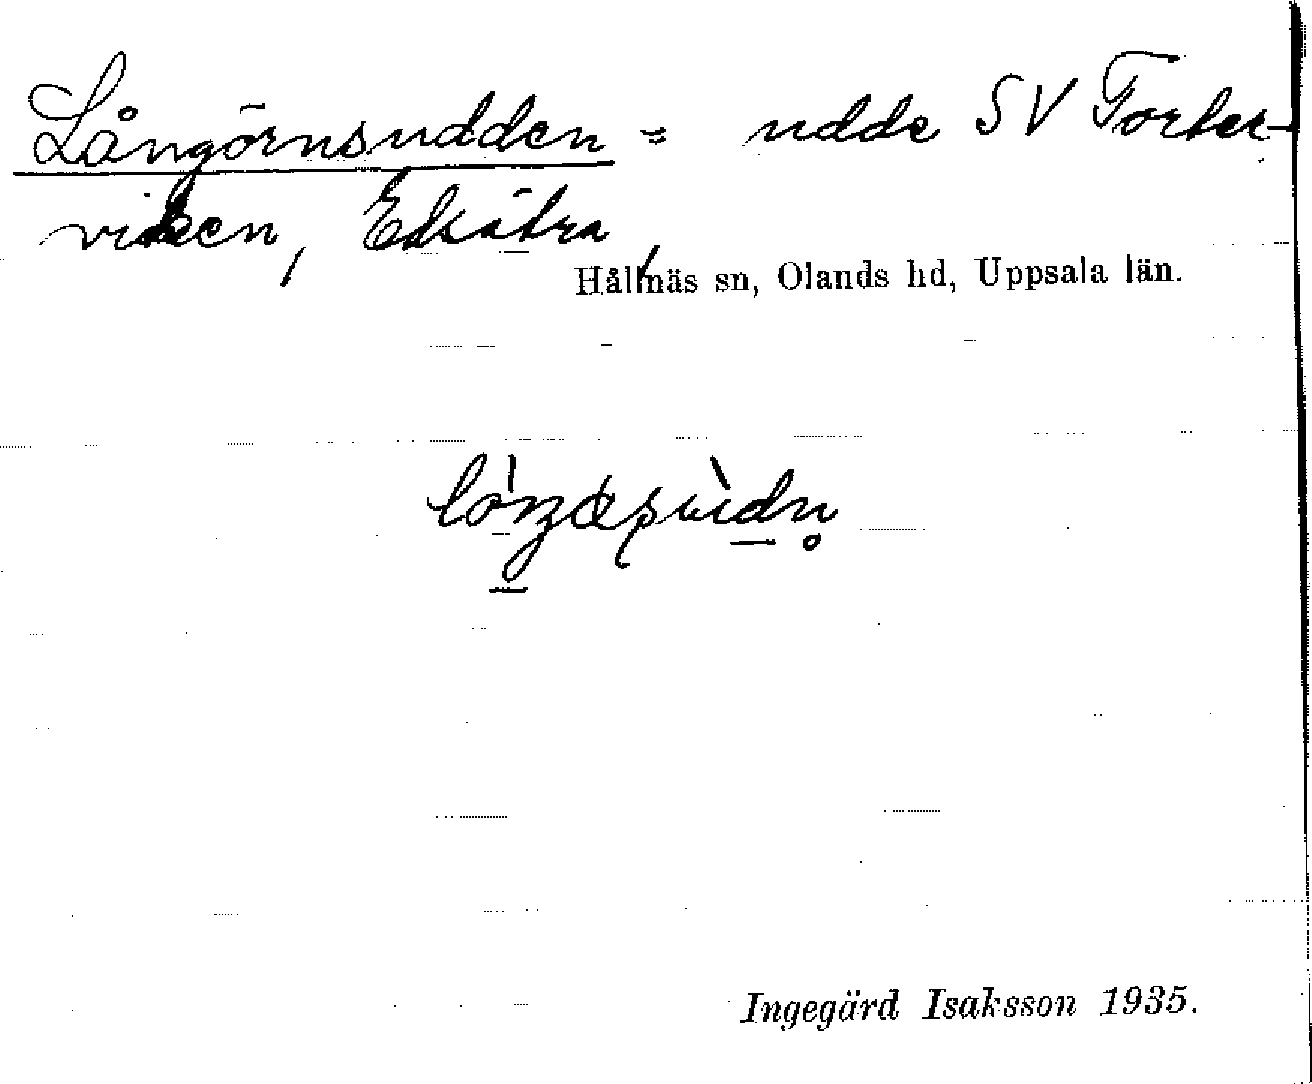 Långörnsudden = udde SV Torker-
viken, Edsätra,
Hållnäs sn, Olands hd, Uppsala län.
Ingegärd Isaksson 1935.